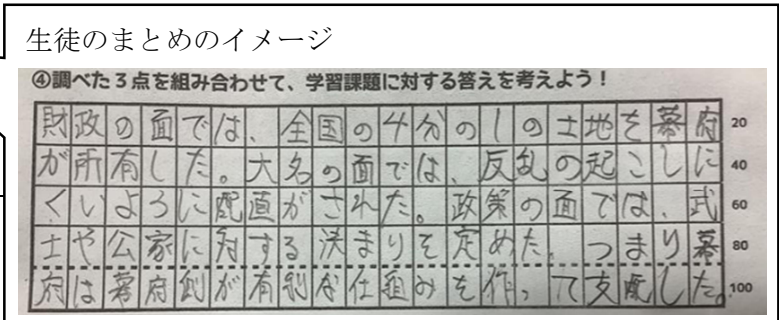 生徒のまとめのイメージ
④調べた3点を組み合わせて、学習課題に対する答えを考えよう！
財政の面では、全国の4分の1の土地を幕府 20
が所有した。大名の面では、反乱の起こしに 40
くいように配置がされた。政策の面では、武 60
士や公家に対する決まりを定めた。つまり幕 80
府は幕府側が有利な仕組みを作って支配した。 100